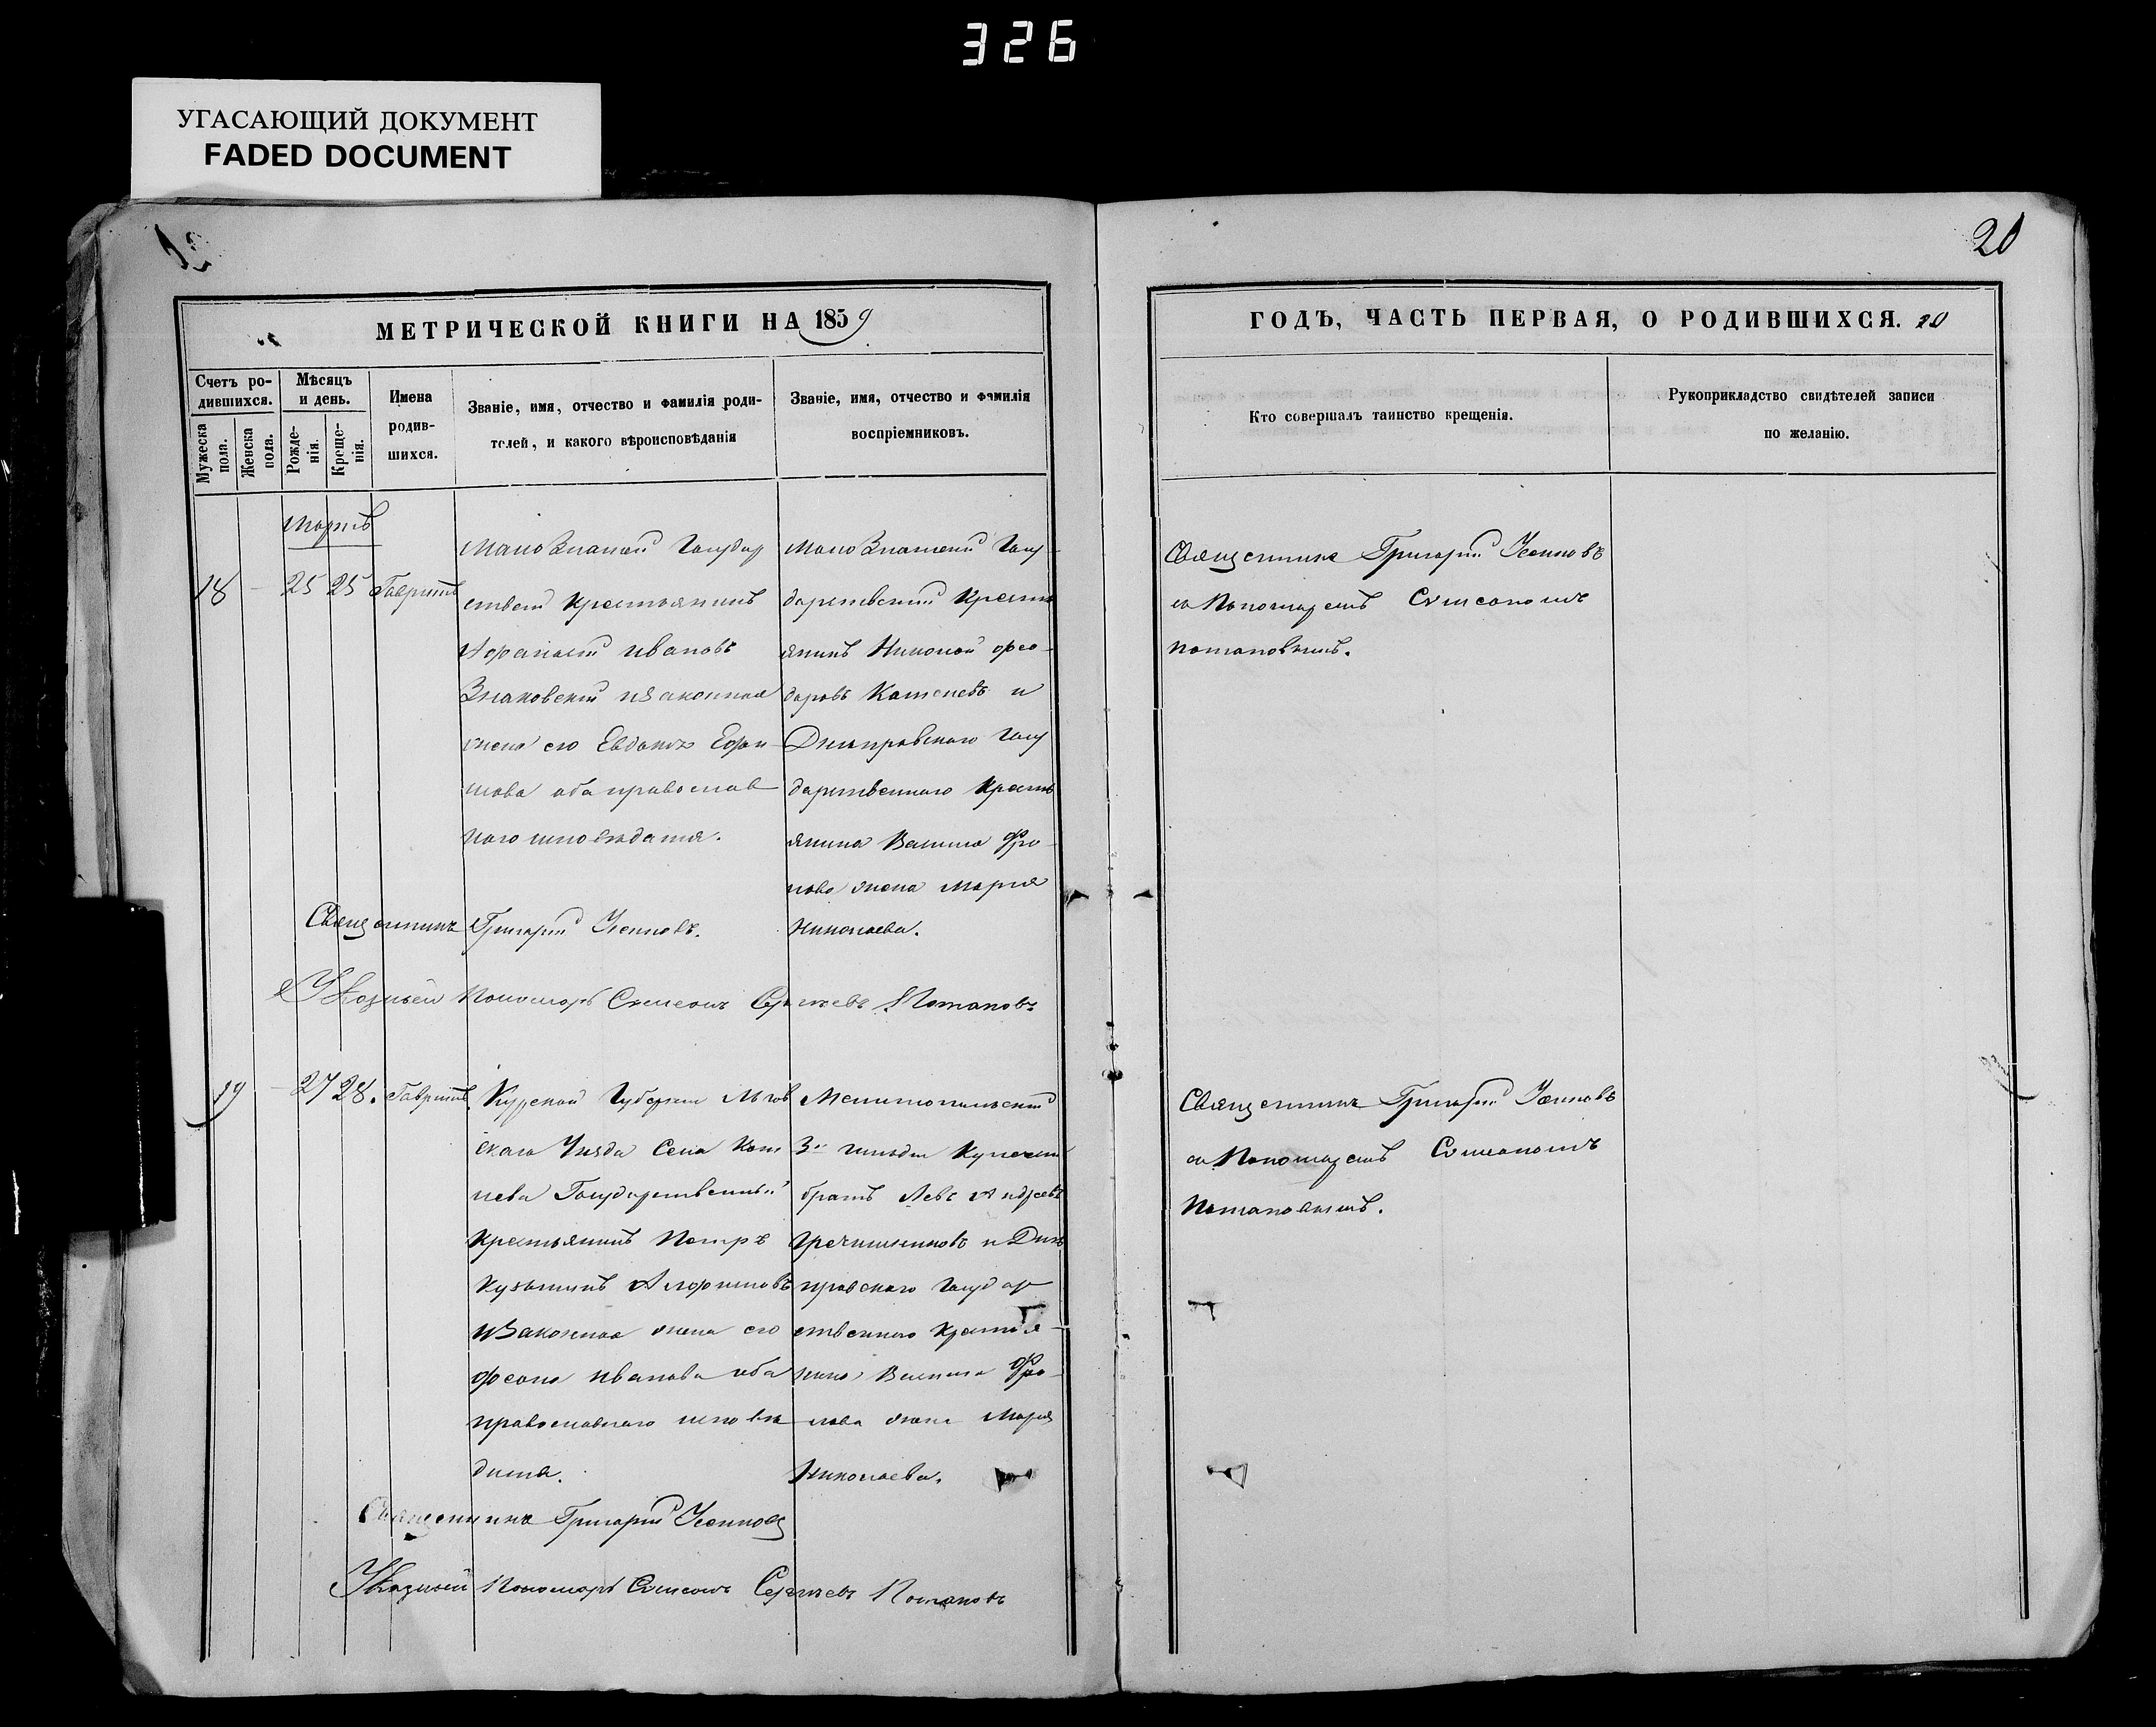 326
УГАСАЮЩИЙ ДОКУМЕНТ
FADED DOCUMENT
20
МЕТРИЧЕСКОЙ КНИГИ НА 1859
Счетъ ро-
дившихся.
Мужеска
пола.
Женска
пола.
Мѣсяцъ
и день.
Рожде-
нія.
Креще-
нія.
Имена
родив-
шихся.
Званіе, имя, отчество и фамилія роди-
телей, и какого вѣроисповѣданія
Званіе, имя, отчество и фамилія
воспріемниковъ.
ГОДЪ, ЧАСТЬ ПЕРВАЯ, О РОДИВШИХСЯ. 20
Кто совершалъ таинство крещенія.
Рукоприкладство свидѣтелей записи
по желанію.
Мартъ
18 25 25
Государ
ствен Крестьянинъ
Ивановъ
Знаковскій изаконная
жена его Евдокія Ефи
мова оба православ
наго исповѣданія.
Госу
дарственный Крестья
янинъ Николай Фео-
доровъ и
Днѣпровскаго Госу
дарственнаго Кресть
янина
жена Марія
Николаева.
Священникъ Григорій
съ Пономаремъ Симеономъ
Потаповымъ.
Священникъ Григорій
Указный Пономарь Симеонъ Сергѣевъ Потаповъ
19 27 28.
Курской Губерніи Льгов
скаго Уѣзда Села
Государственный
Крестьянинъ Петръ
Кузьминъ
изаконная жена его
Иванова оба
православнаго исповѣ
данія.
Мелитопольскій
3й гильдіи
братъ Левъ Андреевъ
Гречишниковъ и Днѣ
провскаго Государ
ственнаго Крестья-
нина
жена Марія
Николаева.
Священникъ Григорій
съ Пономаремъ Симеономъ
Потаповымъ.
Священникъ Григорій
Указный Пономарь Симеонъ Сергѣевъ Потаповъ